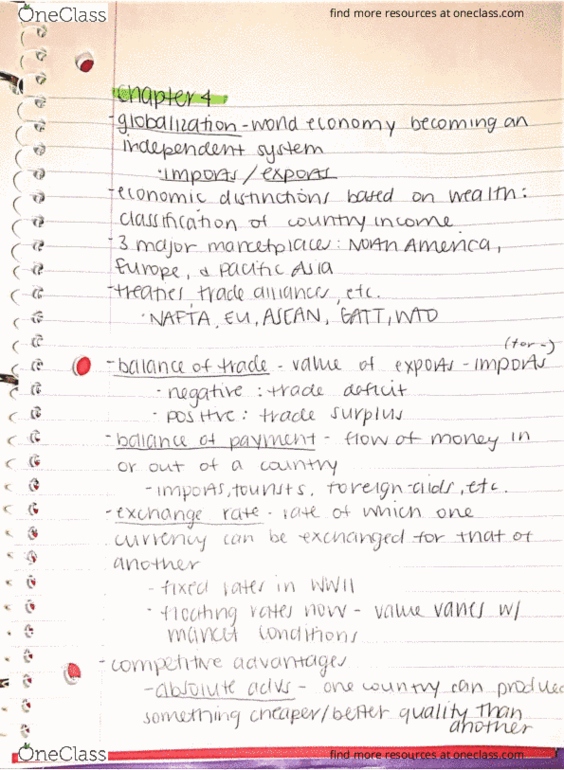 OneClass
find more resources at oneclass.com
Chapter 4
-globalization - world economy becoming an
independent system
·imports/exports
-economic distinctions based on wealth:
classification of country income
-3 major marketplaces: North America,
Europe, & Pacific Asia
-treaties, trade alliances, etc.
·NAFTA, EU, ASEAN, GATT, WTO
(+or-)
-balance of trade - value of exports - imports
·negative: trade deficit
·positive: trade surplus
-balance of payment - flow of money in
or out of a country
-imports, tourists, foreign aids, etc.
-exchange rate - rate of which one
currency can be exchanged for that of
another
-fixed rates in WWII
·floating rates now - value varies w/
market conditions
-competitive advantages
-absolute advs - one country can produce
something cheaper/better quality than
another
OneClass
find more resources at oneclass.com